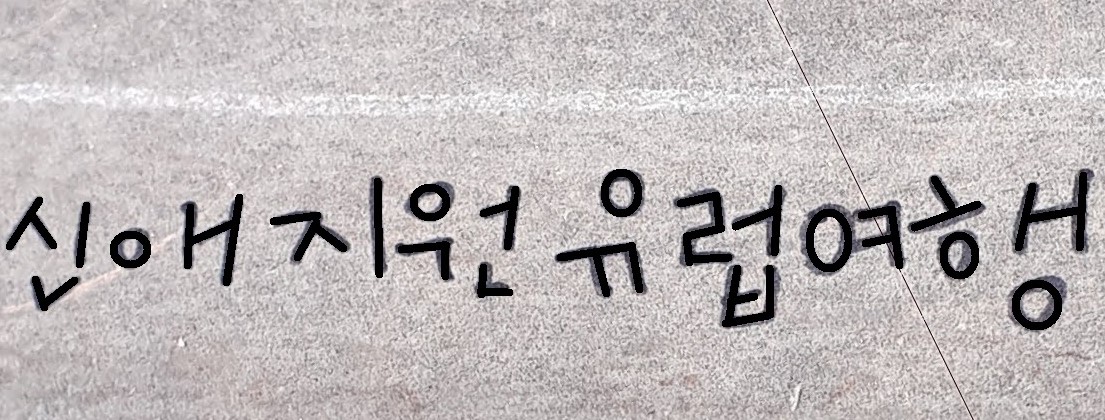 신애 지원 유럽여행